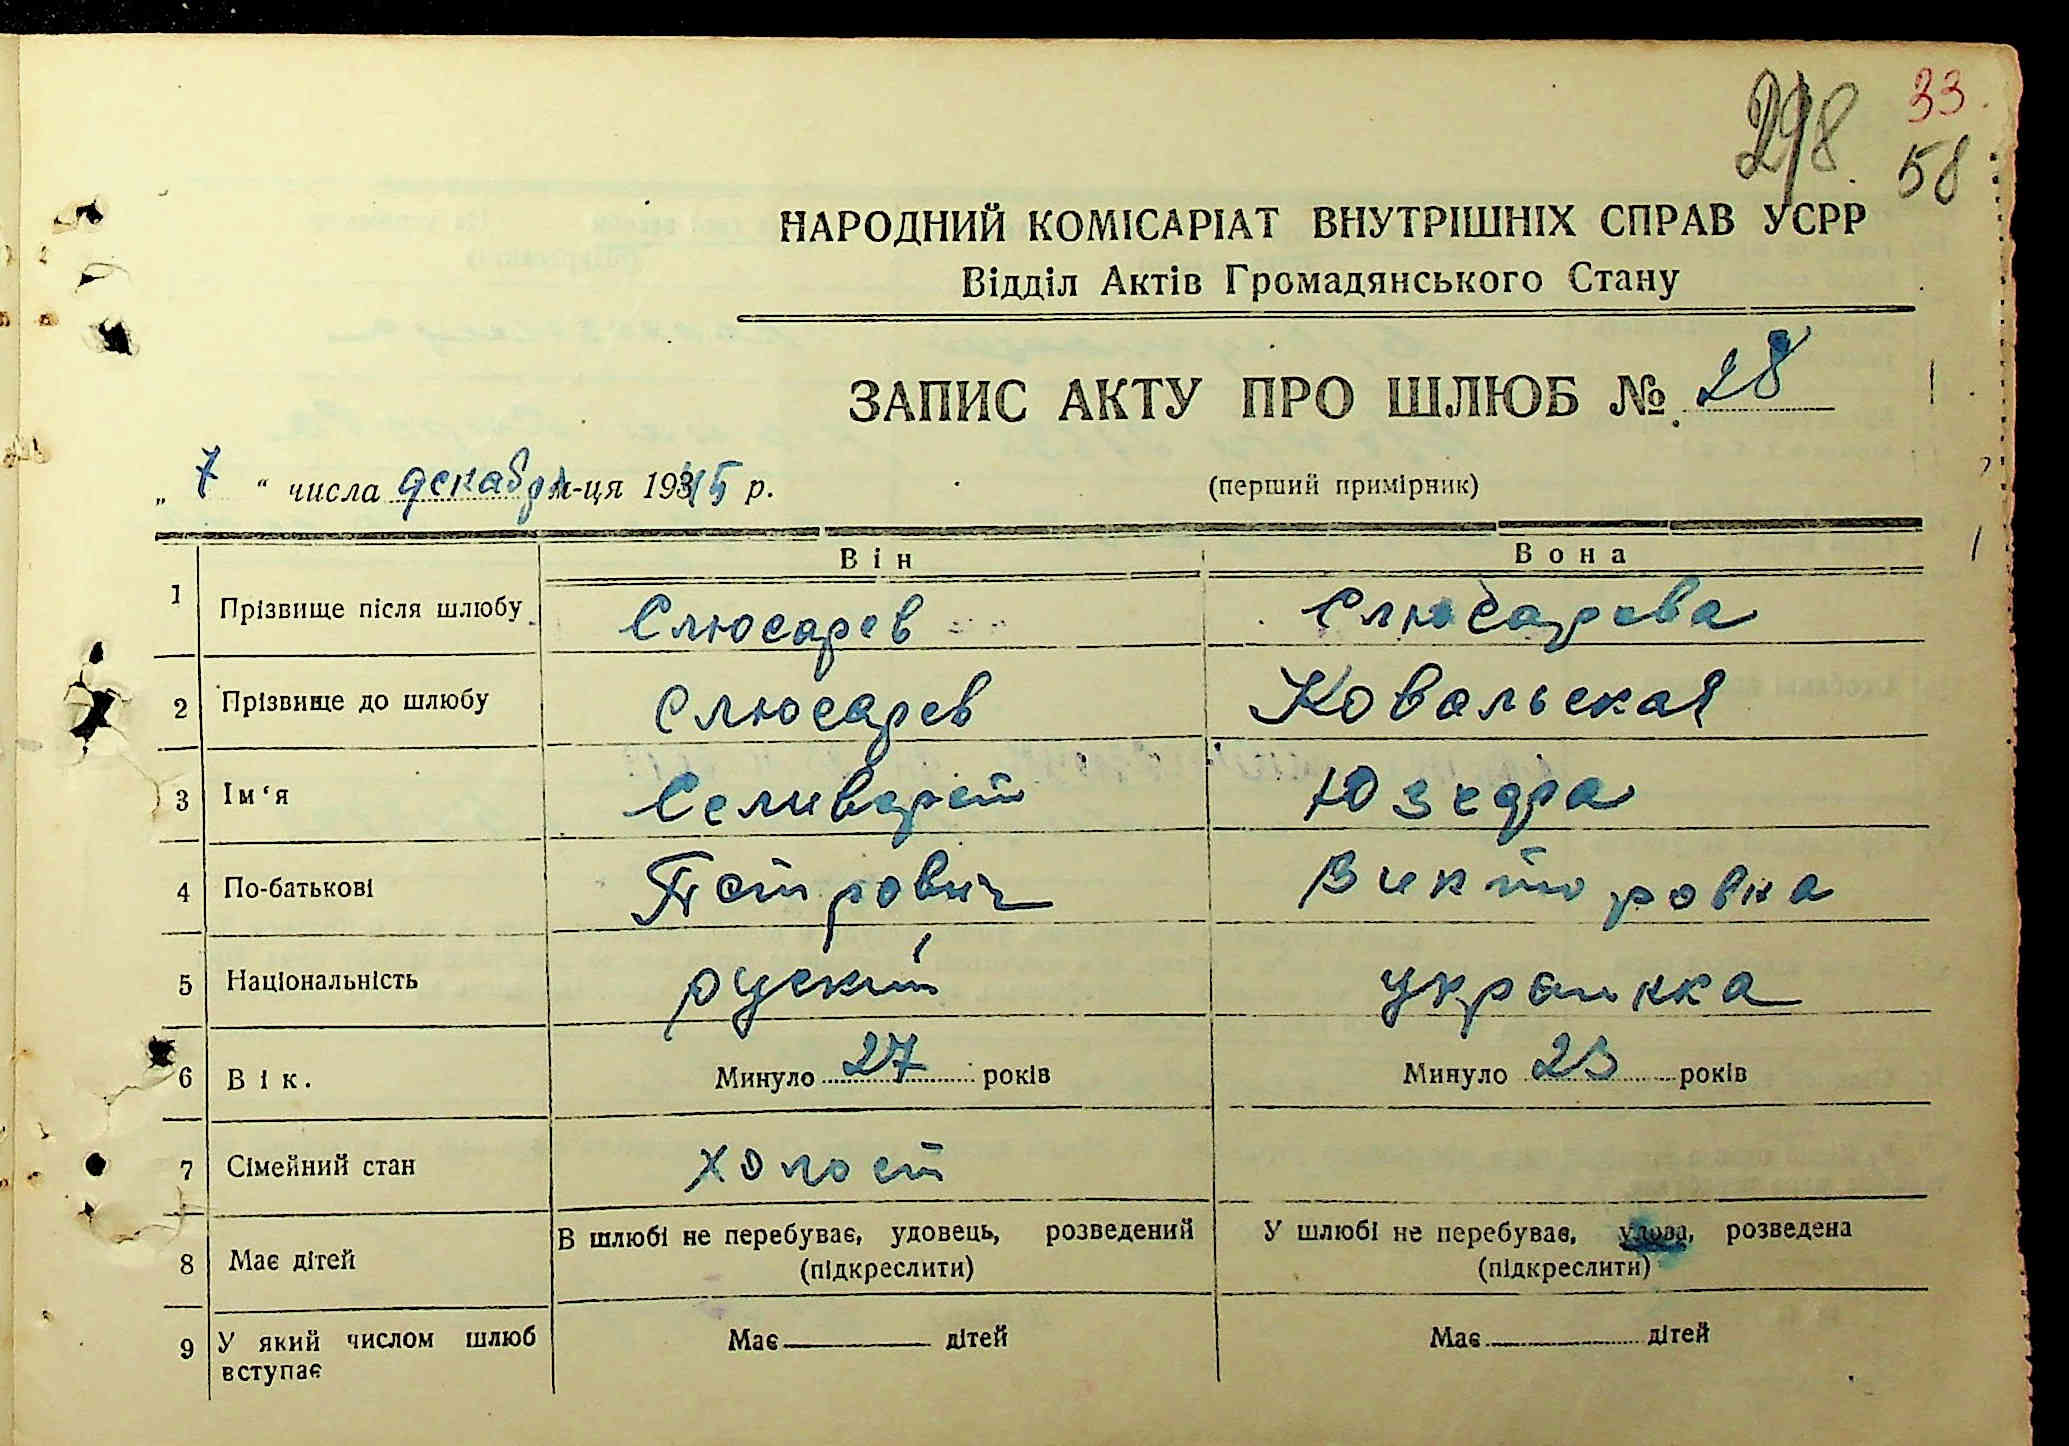 298
33
58
НАРОДНИЙ КОМІСАРІАТ ВНУТРІШНІХ СПРАВ УСРР
Відділ Актів Громадянського Стану
ЗАПИС АКТУ ПРО ШЛЮБ № 28
„ 7 “ числа декабря м-ця 1945 р. (перший примірник)
Він Вона
1 Прізвище після шлюбу Слюсарев Слюсарева
2 Прізвище до шлюбу Слюсарев Ковальская
3 Ім‘я Селиварст Юзефа
4 По-батькові Петрович Викторовна
5 Національність руский украинка
6 Вік. Минуло 27 років Минуло 23 років
7 Сімейний стан холост
8 Має дітей В шлюбі не перебуває, удовець, розведений У шлюбі не перебуває, удова, розведена
(підкреслити) (підкреслити)
9 У який числом шлюб Має дітей Має дітей
вступає